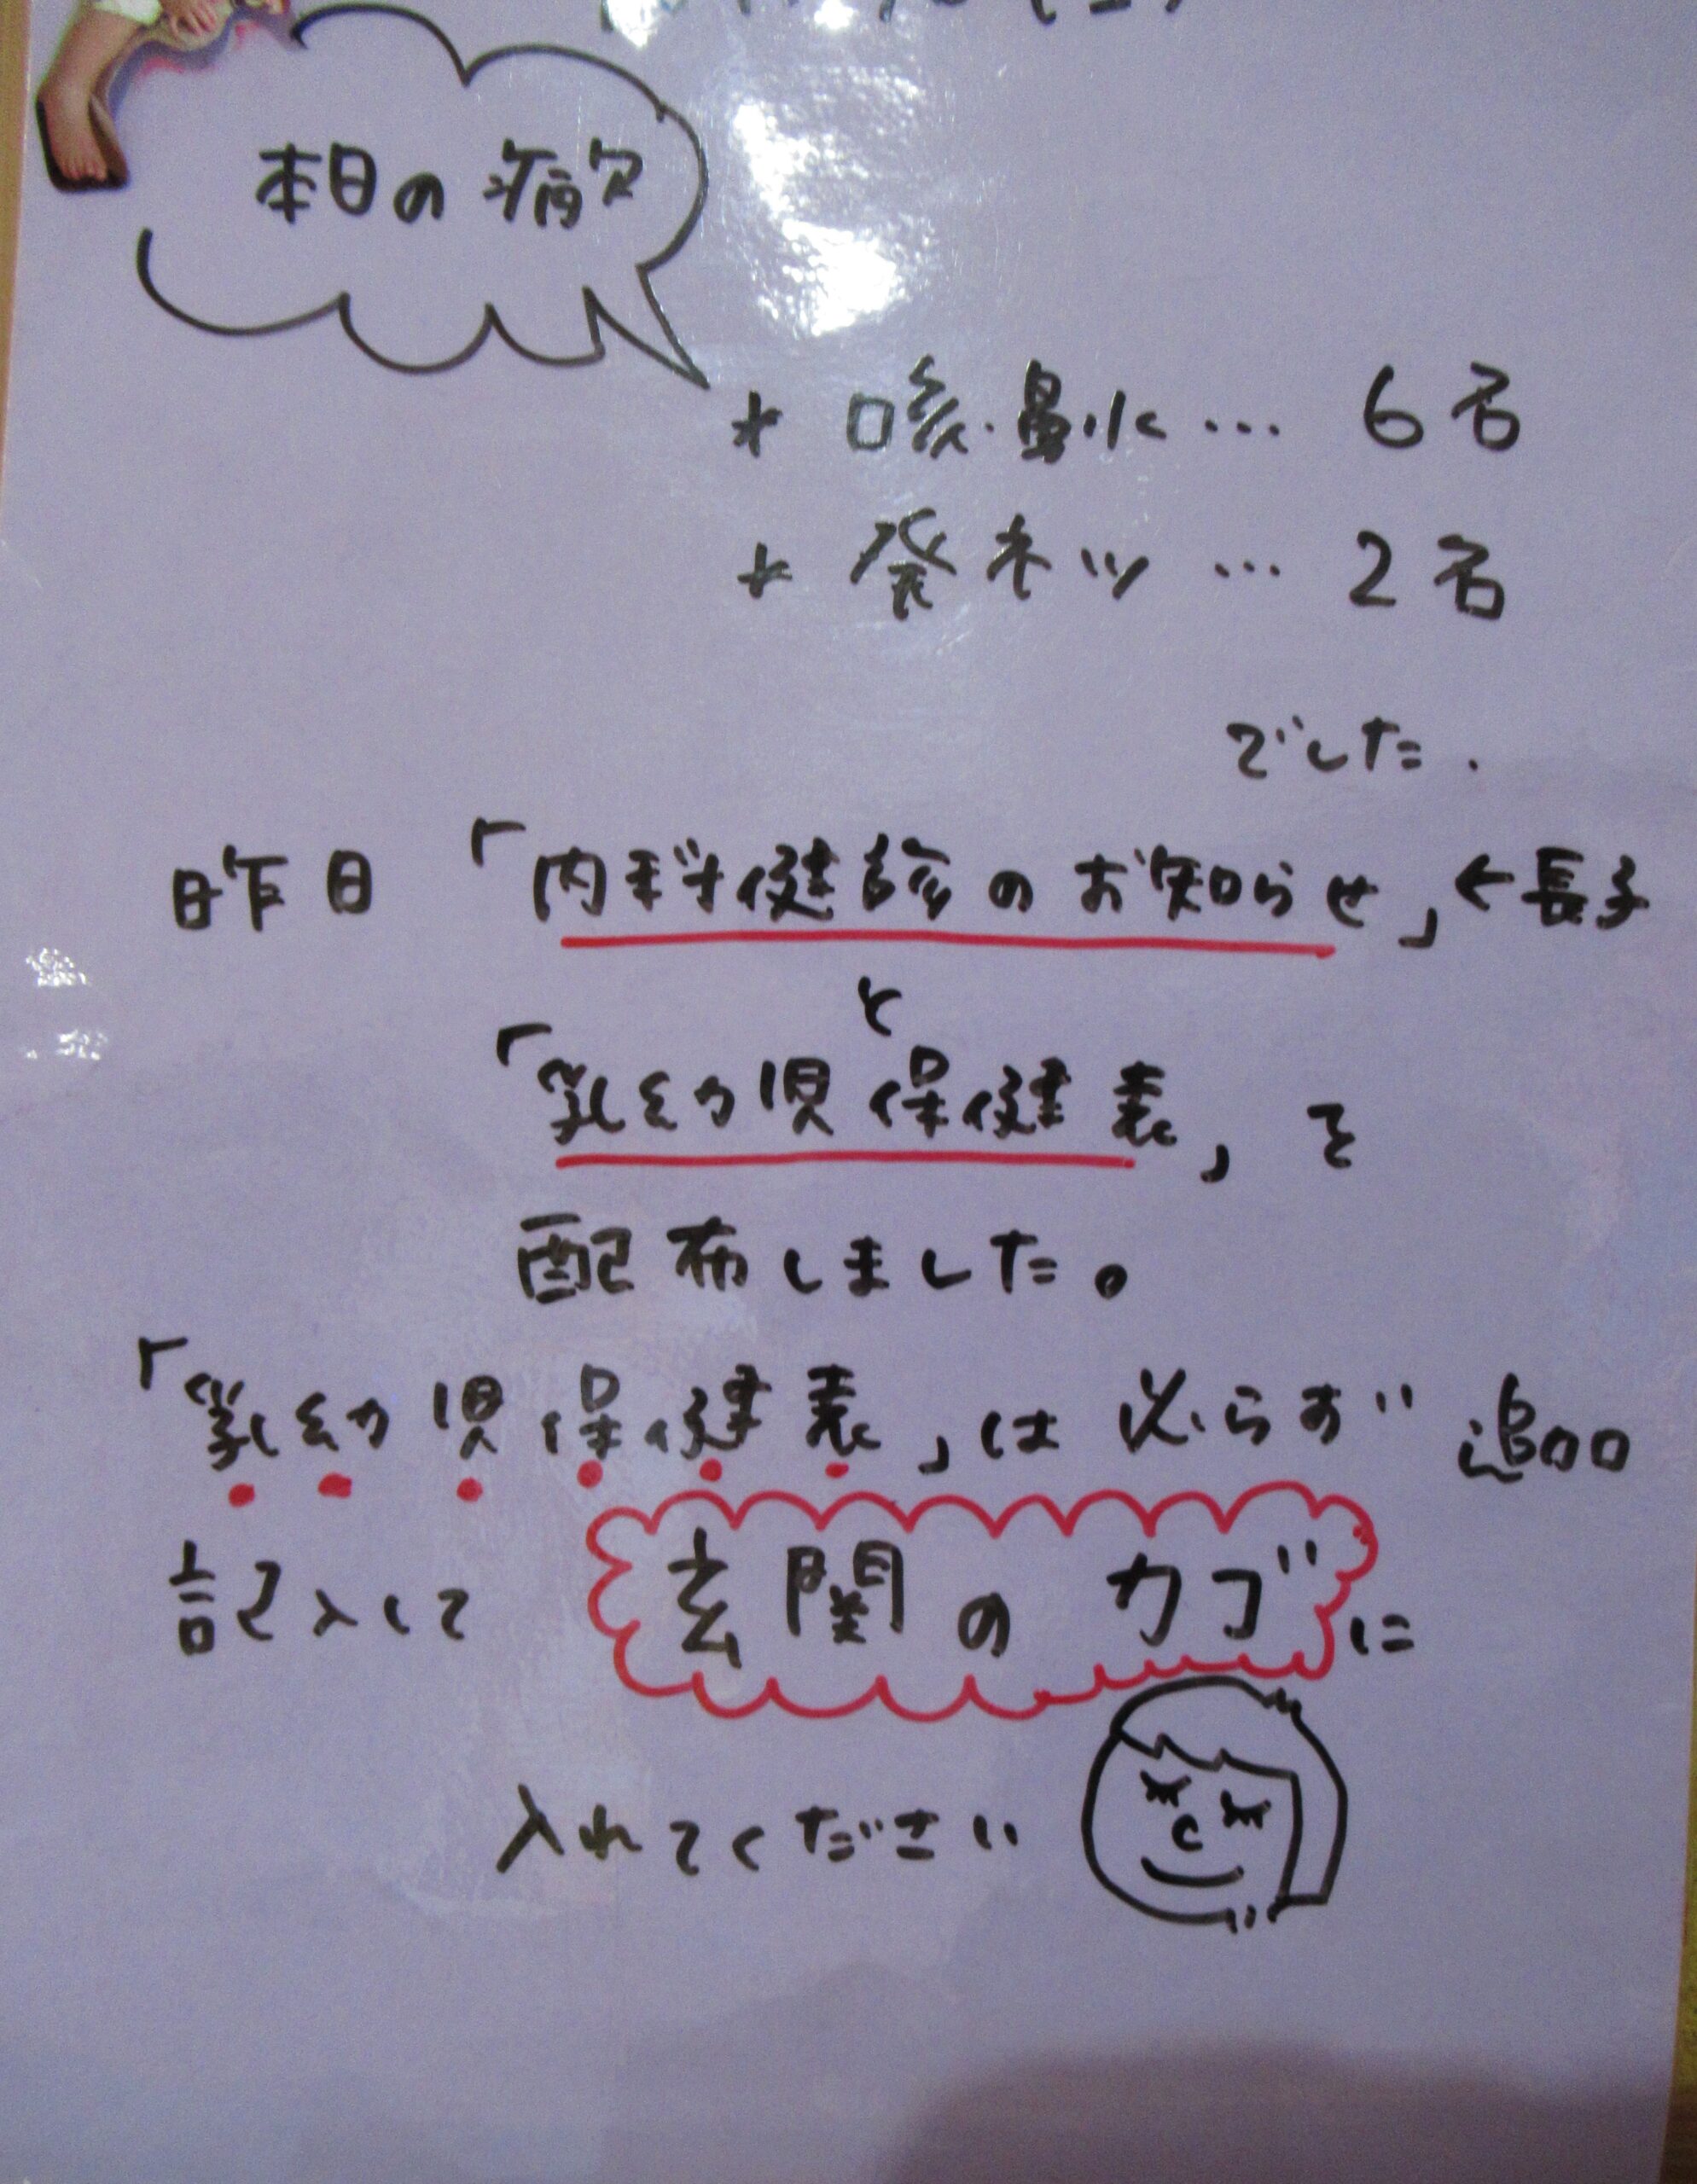 本日の病欠
* 咳・鼻水… 6名
* 発ネツ … 2名
でした.
昨日「内科健診のお知らせ」←長子
と
「乳幼児保健表」を
配布しました。
「乳幼児保健表」は必らず追加
記入して 玄関のカゴに
入れてください